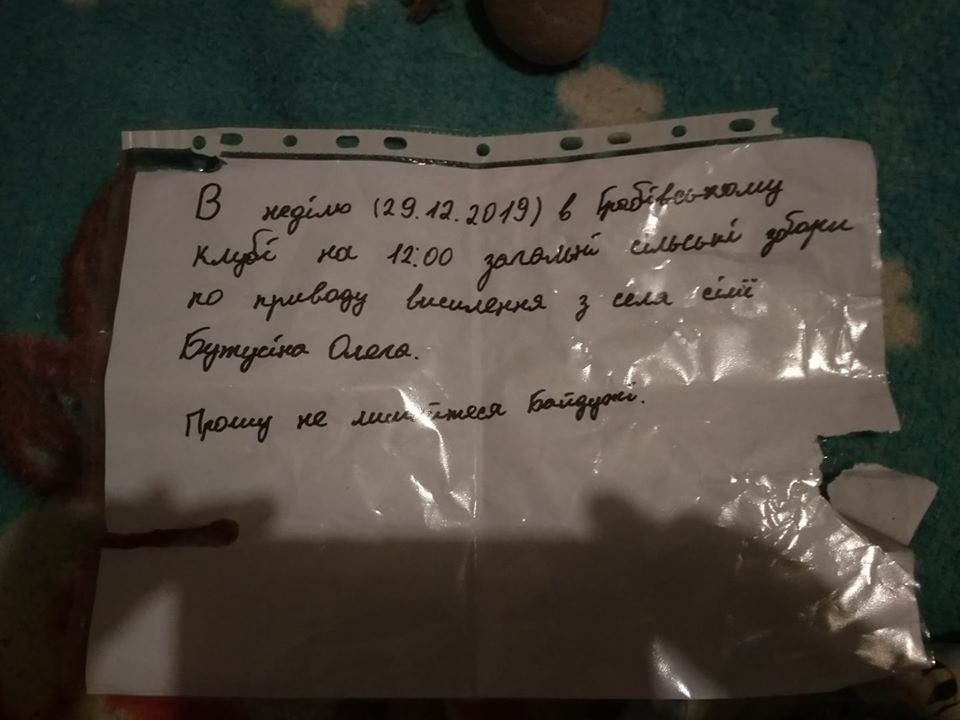 В неділю (29.12.2019) в Грабівському
клубі на 12:00 загальні сільські збори
по приводу висилення з села сімї
Бутусіна Олега.
Прошу не лишайтеся Байдужі.